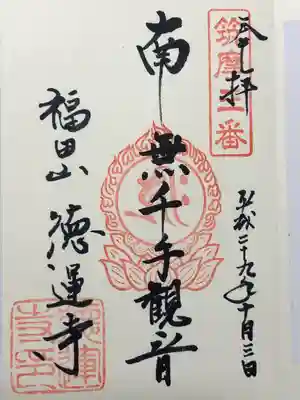 奉拝
筑摩三番
平成二十九年十月三日
南無千手観音
福田山 徳運寺